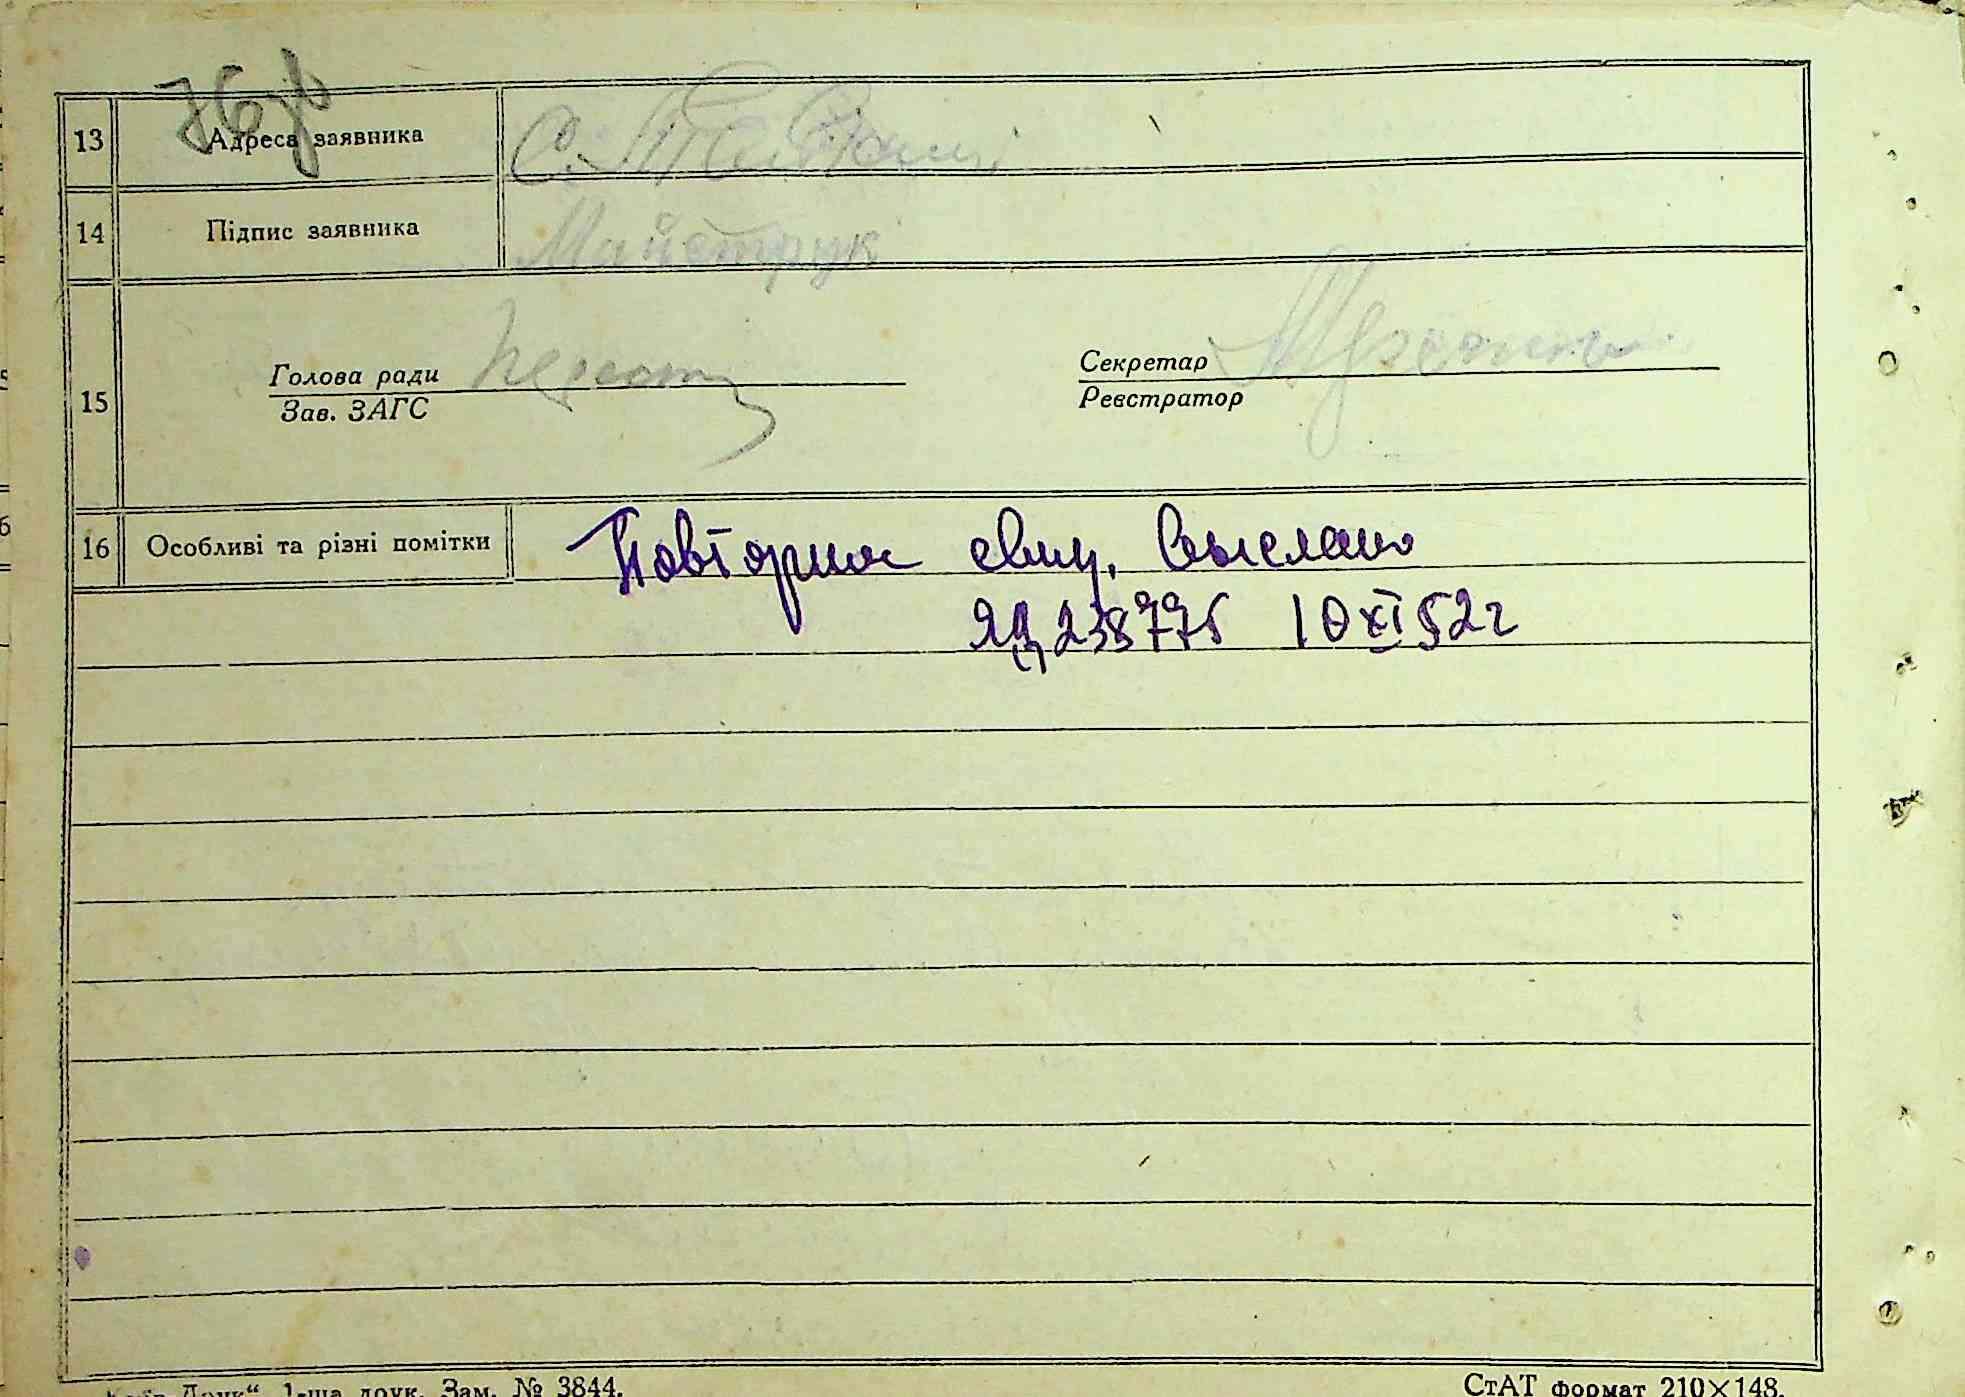 76 зв
13 Адреса заявника С.
14 Підпис заявника Майструк
15 Голова ради Секретар
Зав. ЗАГС Реєстратор
16 Особливі та різні помітки Повторное свид. выслано
ЯЦ 238775 10 XI 52 г
Друк“ 1-ша друк. Зам. № 3844. СтАТ формат 210×148.